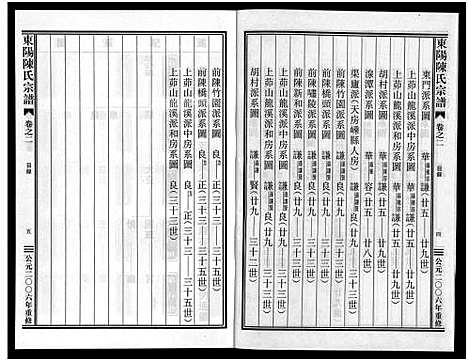 東陽陳氏宗譜
卷之二
目錄
四
公元二〇〇六年重修
東門派系圖 華 謙（廿五 廿九世）
上茆山龍溪派中房系圖 華 謙（廿五 廿九世）
上茆山龍溪派和房系圖 華 謙（廿五 廿九世）
胡村派系圖 謙（廿五 廿九世）
湶潭派系圖 華 容（廿五 廿八世）
果廬派（大房嵊縣人房） 謙 良（廿九 三十二世）
前陳竹園派系圖 謙 良（廿九 三十二世）
前陳橋頭派系圖 謙 良（廿九 三十二世）
前陳嘯陵派系圖 謙 良（廿九 三十二世）
前陳新和派系圖 謙 良（廿九 三十二世）
上茆山龍溪派中房系圖 謙 良（廿九 三十二世）
上茆山龍溪派和房系圖 謙 良（廿九 三十二世）
胡村派系圖 謙 賢（廿九 三十二世）
前陳竹園派系圖 良 正（三十三 三十五世）
前陳橋頭派系圖 良 正（三十三 三十五世）
上茆山龍溪派中房系圖 良（三十三 三十五世）
上茆山龍溪派和房系圖 良（三十三世）
東陽陳氏宗譜
卷之二
目錄
五
公元二〇〇六年重修